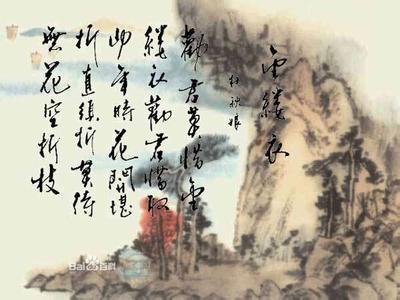 金縷衣
杜秋娘
勸君莫惜金
縷衣勸君惜取
少年時花開堪
折直須折莫待
無花空折枝
Bai百科